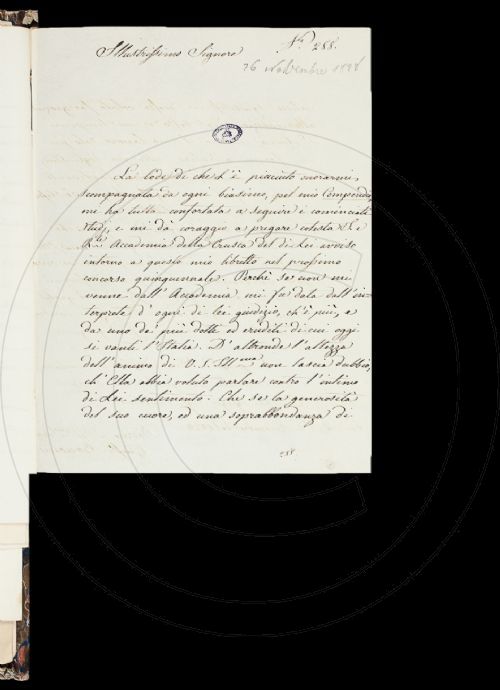 N.º 288.
Illustrissimo Signore
26 Novembre
La lode di che L'è piaciuto onorarmi,
scompagnata da ogni biasimo, pel mio Compendio,
mi ha tutto confortata a seguire i cominciati
studj, e mi da coraggio a pregare cotesta I. e
R. Accademia della Crusca del di Lei avviso
intorno a questo mio libretto nel prossimo
concorso quinquennale. Perchè se non mi
venne dall'Accademia, mi fu data dall'in=
terprete d'ogni di lei giudizio, ch'è più, e
da uno de' più dotti ed eruditi di cui oggi
si vanti l'Italia. D'altronde l'altezza
dell'animo di V. S. Ill.ma non lascia dubbio,
ch'Ella abbia voluto parlare contro l'intimo
di Lei sentimento. Che se la generosità
del suo cuore, ed una soprabbondanza di
288